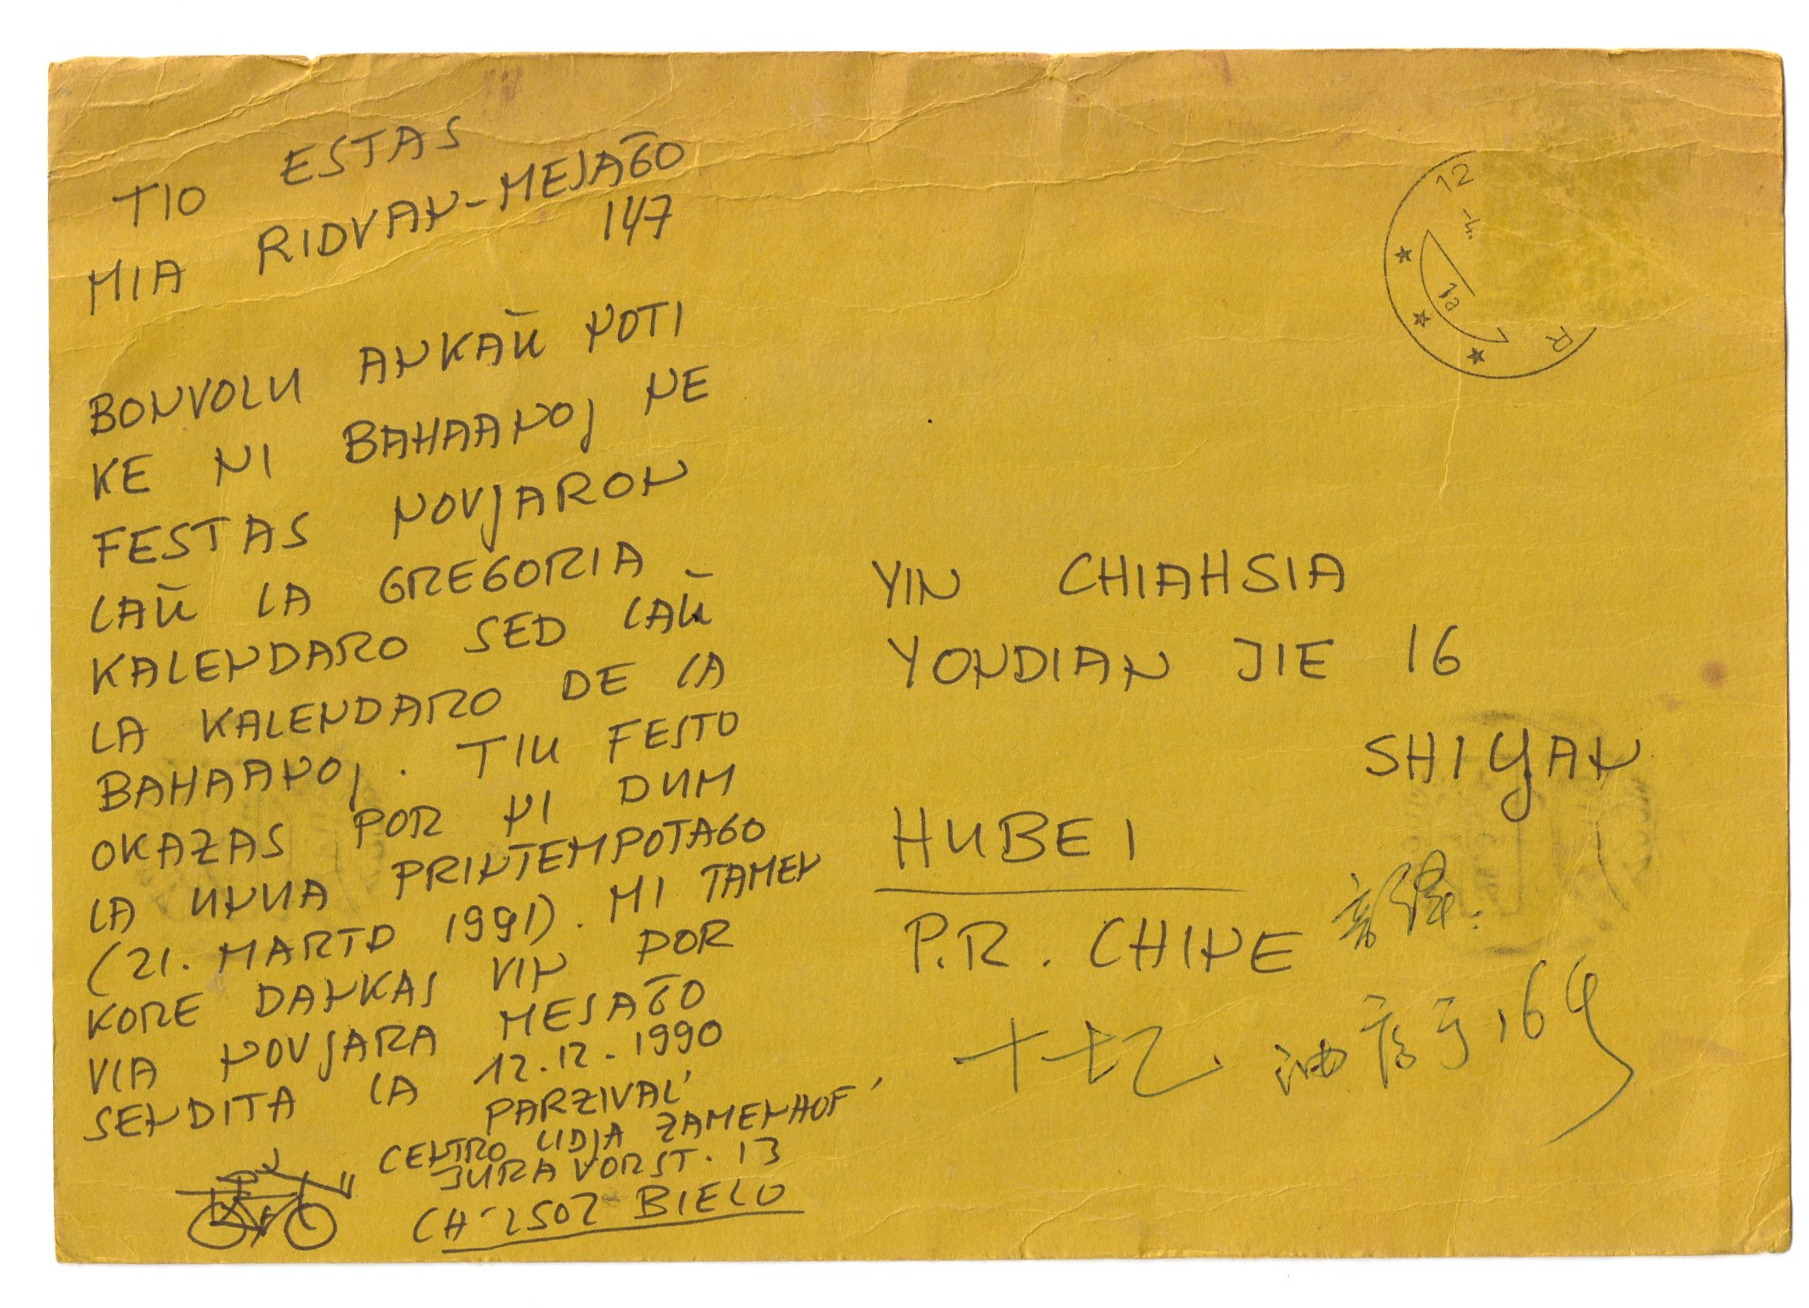 TIO ESTAS
MIA RIDVAN-MESAĜO
147
BONVOLU ANKAŬ NOTI
KE NI BAHAANOJ NE
FESTAS NOVJARON
LAŬ LA GREGORIA
KALENDARO SED LAŬ
LA KALENDARO DE LA
BAHAANOJ. TIU FESTO
OKAZAS POR NI DUM
LA UNUA PRINTEMPOTAGO
(21. MARTO 1991). MI TAMEN
KORE DANKAS VIN POR
VIA NOVJARA MESAĜO
SENDITA LA 12.12.1990
PARZIVAL'
CENTRO LIDJA ZAMENHOF'
JURAVORST. 13
CH-2502 BIELO
12
1a
R
YIN CHIAHSIA
YONDIAN JIE 16
SHIYAN
HUBEI
P.R. CHINE
十七
164